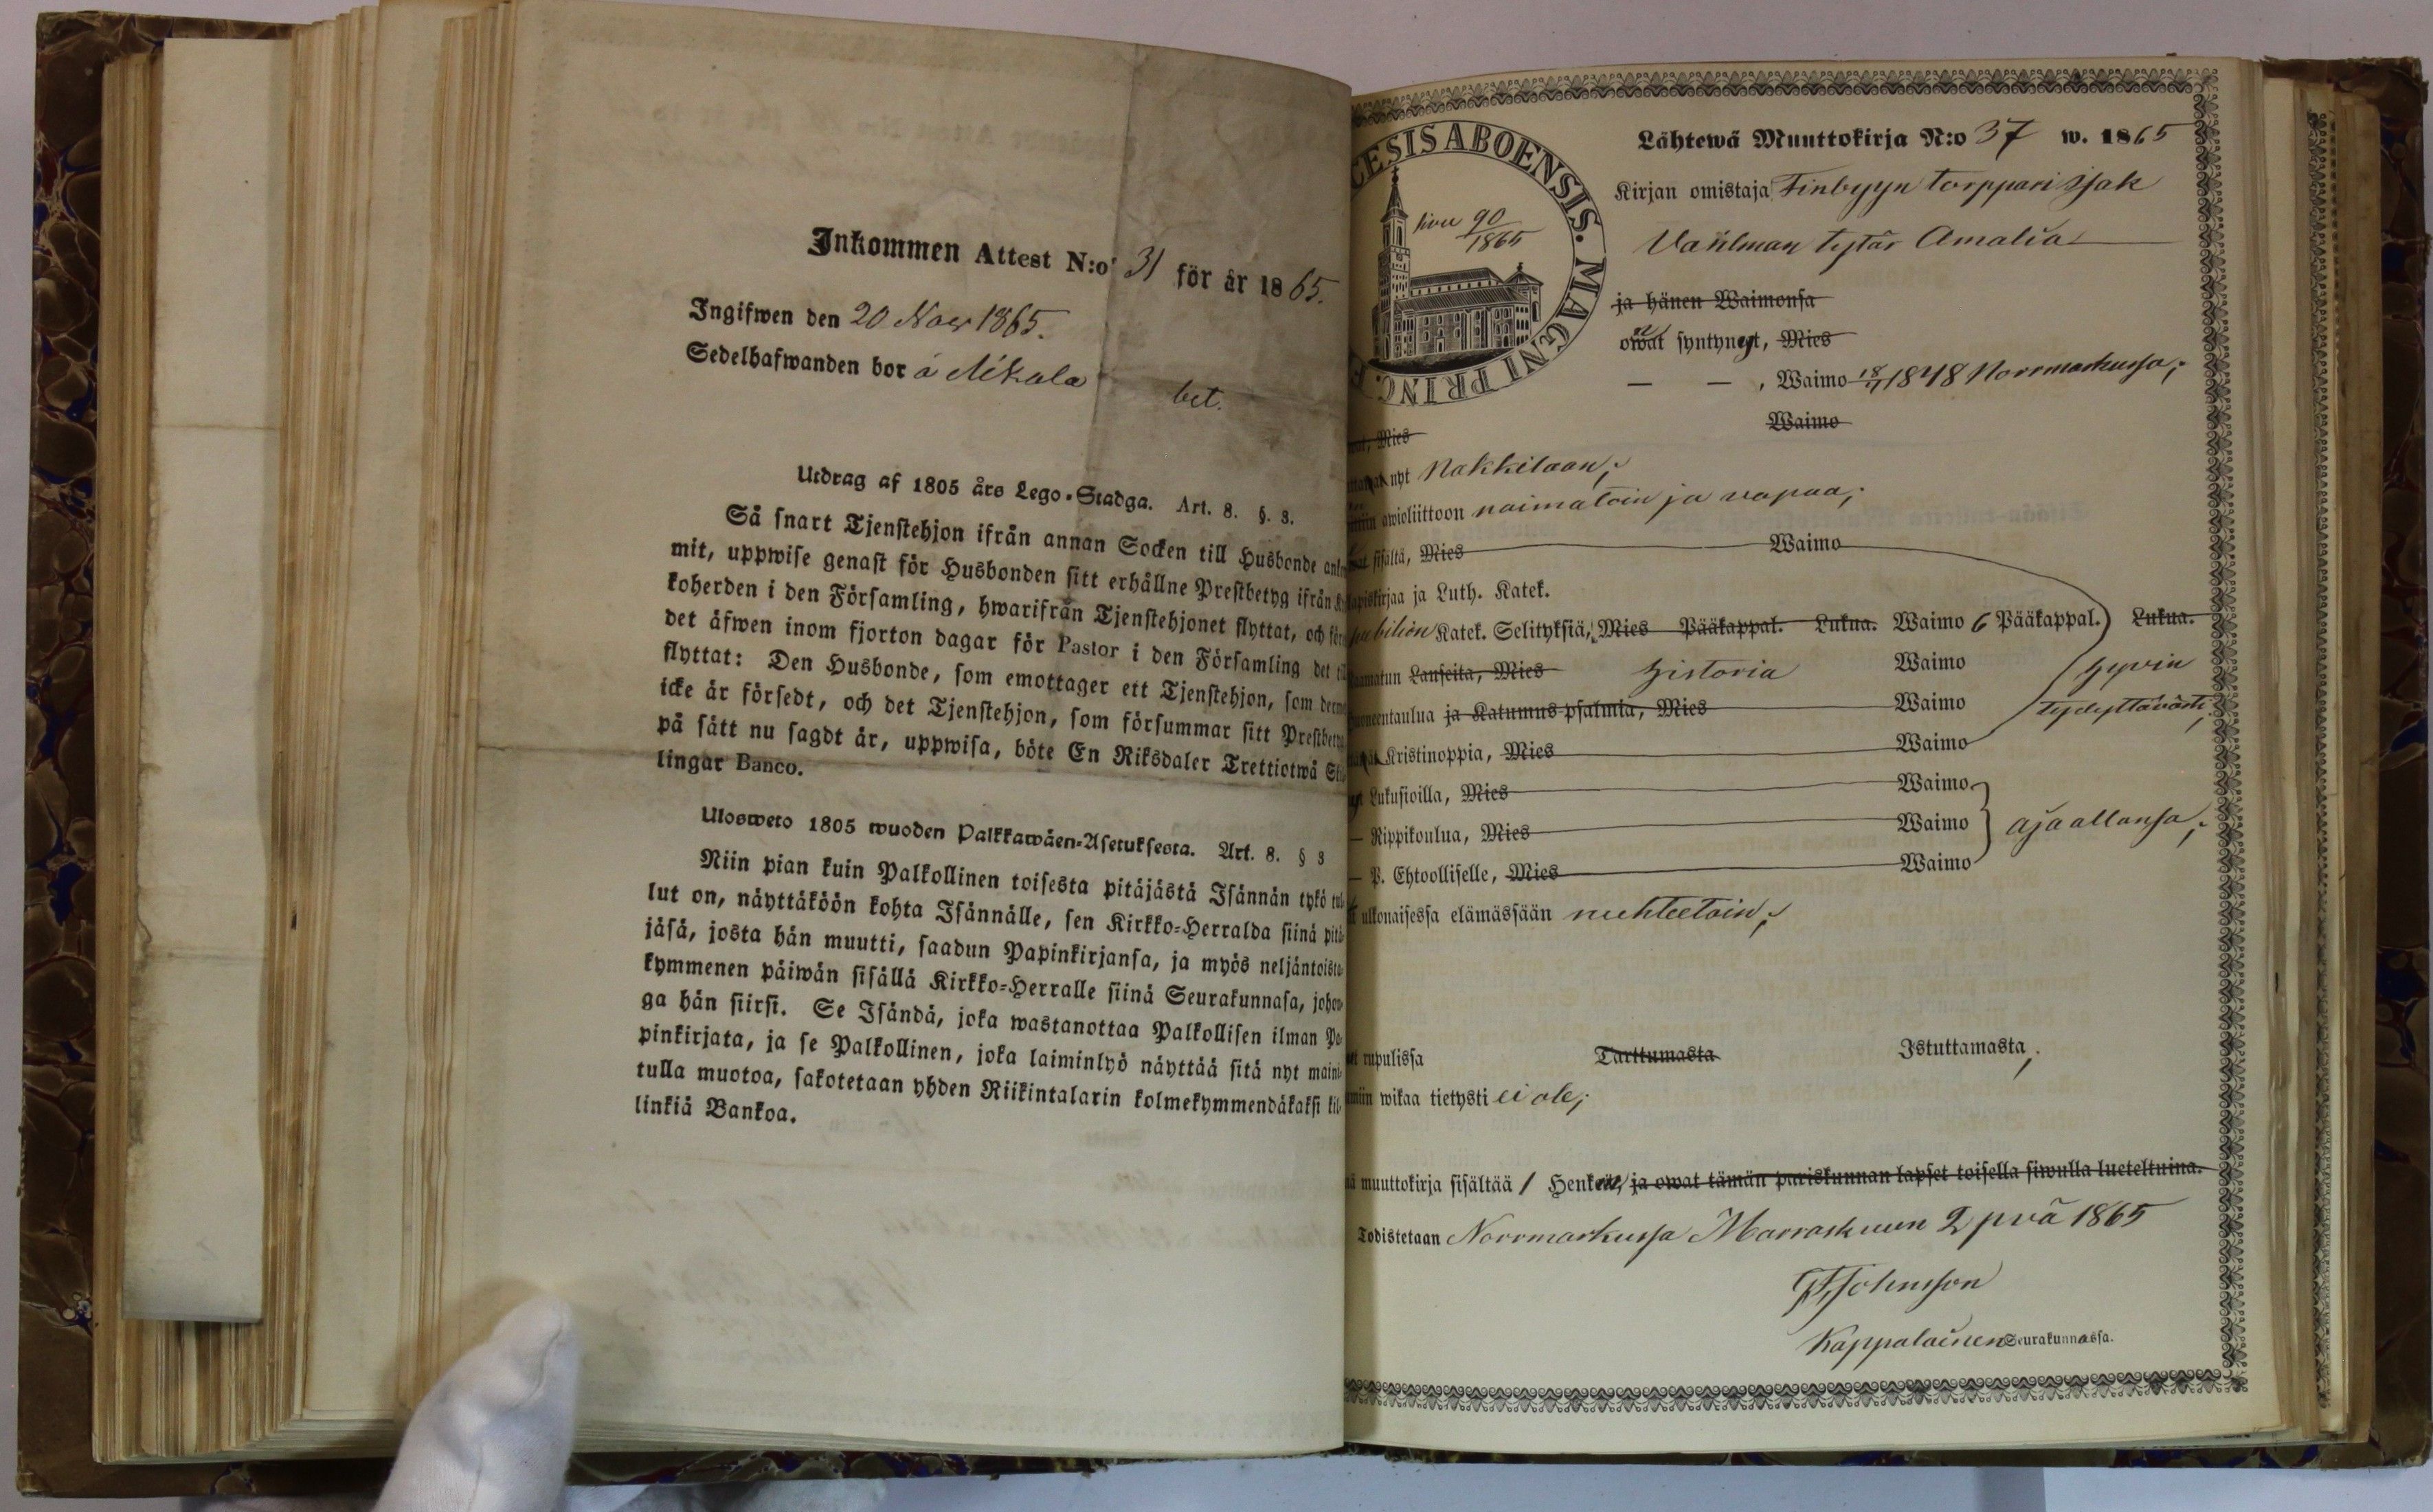 Inkommen Attest N:o 31 för år 1865.
Ingifwen den 20 Nov 1865.
Sedelhafwanden bor å
bet.
Utdrag af 1805 års Lego-Stadga. Art. 8. §. 8.
Så snart Tjenstehjon ifrån annan Socken till Husbonde
mit, uppwise genast för Husbonden sitt erhållne Prestbetyg ifrån
koherden i den Församling, hwarifrån Tjenstehjonet flyttat, och
det äfwen inom fjorton dagar för Pastor i den Församling det
flyttat: Den Husbonde, som emottager ett Tjenstehjon, som
icke är försedt, och det Tjenstehjon, som försummar sitt
på sätt nu sagdt är, uppwisa, böte En Riksdaler Trettiotwå
lingar Banco.
Ulosweto 1805 wuoden Palkkawäen-Asetuksesta. Art. 8. § 8
Niin pian kuin Palkollinen toisesta pitäjästä Isännän tykö tul-
lut on, näyttäköön kohta Isännälle, sen Kirkko-Herralda siinä pitä-
jäsä, josta hän muutti, saadun Papinkirjansa, ja myös neljäntoista-
kymmenen päiwän sisällä Kirkko-Herralle siinä Seurakunnasa, johon-
ga hän siirsi. Se Isändä, joka wastanottaa Palkollisen ilman Pa-
pinkirjata, ja se Palkollinen, joka laiminlyö näyttää sitä nyt maini-
tulla muotoa, sakotetaan yhden Riikintalarin kolmekymmendäkaksi kil-
linkiä Bankoa.
CESIS ABOENSIS. MAGNI PRINC. F
sivu 90
1865
Lähtewä Muuttokirja N:o 37 w. 1865
Kirjan omistaja Finbyyn torppari Isak
Vahlman tytär Amalia
ja hänen Waimonsa
syntynyt, Mies
— — , Waimo 1848 Norrmarkussa;
Mies Waimo
nyt Nakkilaan;
awioliittoon naimatoin ja vapaa;
sisältä, Mies Waimo
ja Luth. Katek.
Katek. Selityksiä, Mies Pääkappal. Lukua. Waimo 6 Pääkappal. Lukua.
Lauseita, Mies historia Waimo hyvin
ja Katumus-psalmia, Mies Waimo tydyttävästi;
Kristinoppia, Mies Waimo
Lukusioilla, Mies Waimo
— Rippikoulua, Mies Waimo ajaallansa;
— P. Ehtoolliselle, Mies Waimo
ulkonaisessa elämässään nuhteetoin;
rupulissa Tarttumasta Istuttamasta;
wikaa tietysti ei ole;
muuttokirja sisältää 1 ja owat tämän pariskunnan lapset toisella siwulla lueteltuina.
Todistetaan Norrmarkussa Marraskuun 2 pvä 1865
Johnsson
Kappalainen Seurakunnassa.